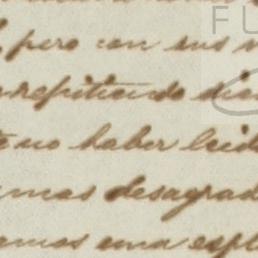 FU
, pero con sus
repitiendo dia
no haber leid
mas desagrad
amos una espl